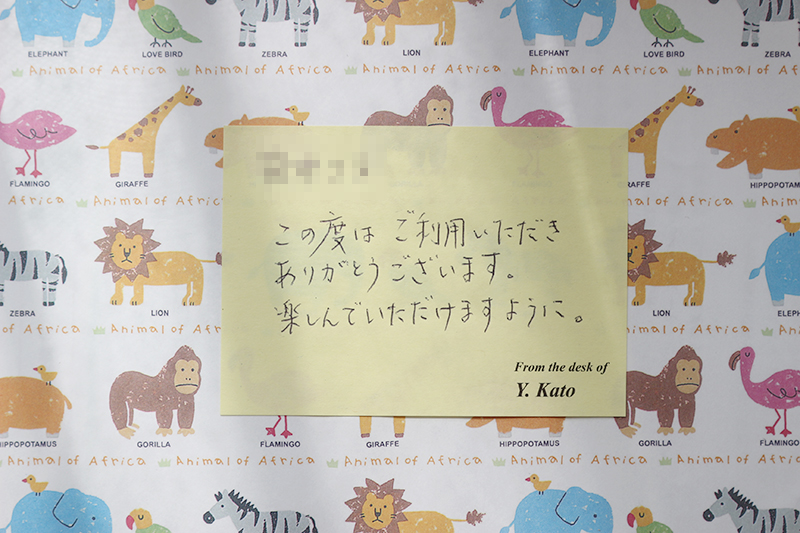 ELEPHANT LOVE BIRD ZEBRA LION ELEPHANT LOVE BIRD ZEBRA
Animal of Africa Animal of Africa Animal of Africa Animal of Africa Animal of Africa
FLAMINGO GIRAFFE RAFFE HIPPOPOTAM
Animal of Africa Animal of Africa
この度は ご利用いただき
ありがとうございます。
楽しんでいただけますように。
From the desk of
Y. Kato
ZEBRA LION LION ELEPH
Animal of Africa Animal of Africa
HIPPOPOTAMUS GORILLA FLAMINGO GIRAFFE HIPPOPOTAMUS GORILLA FLAMINGO
Animal of Africa Animal of Africa Animal of Africa Animal of Africa Animal of Africa